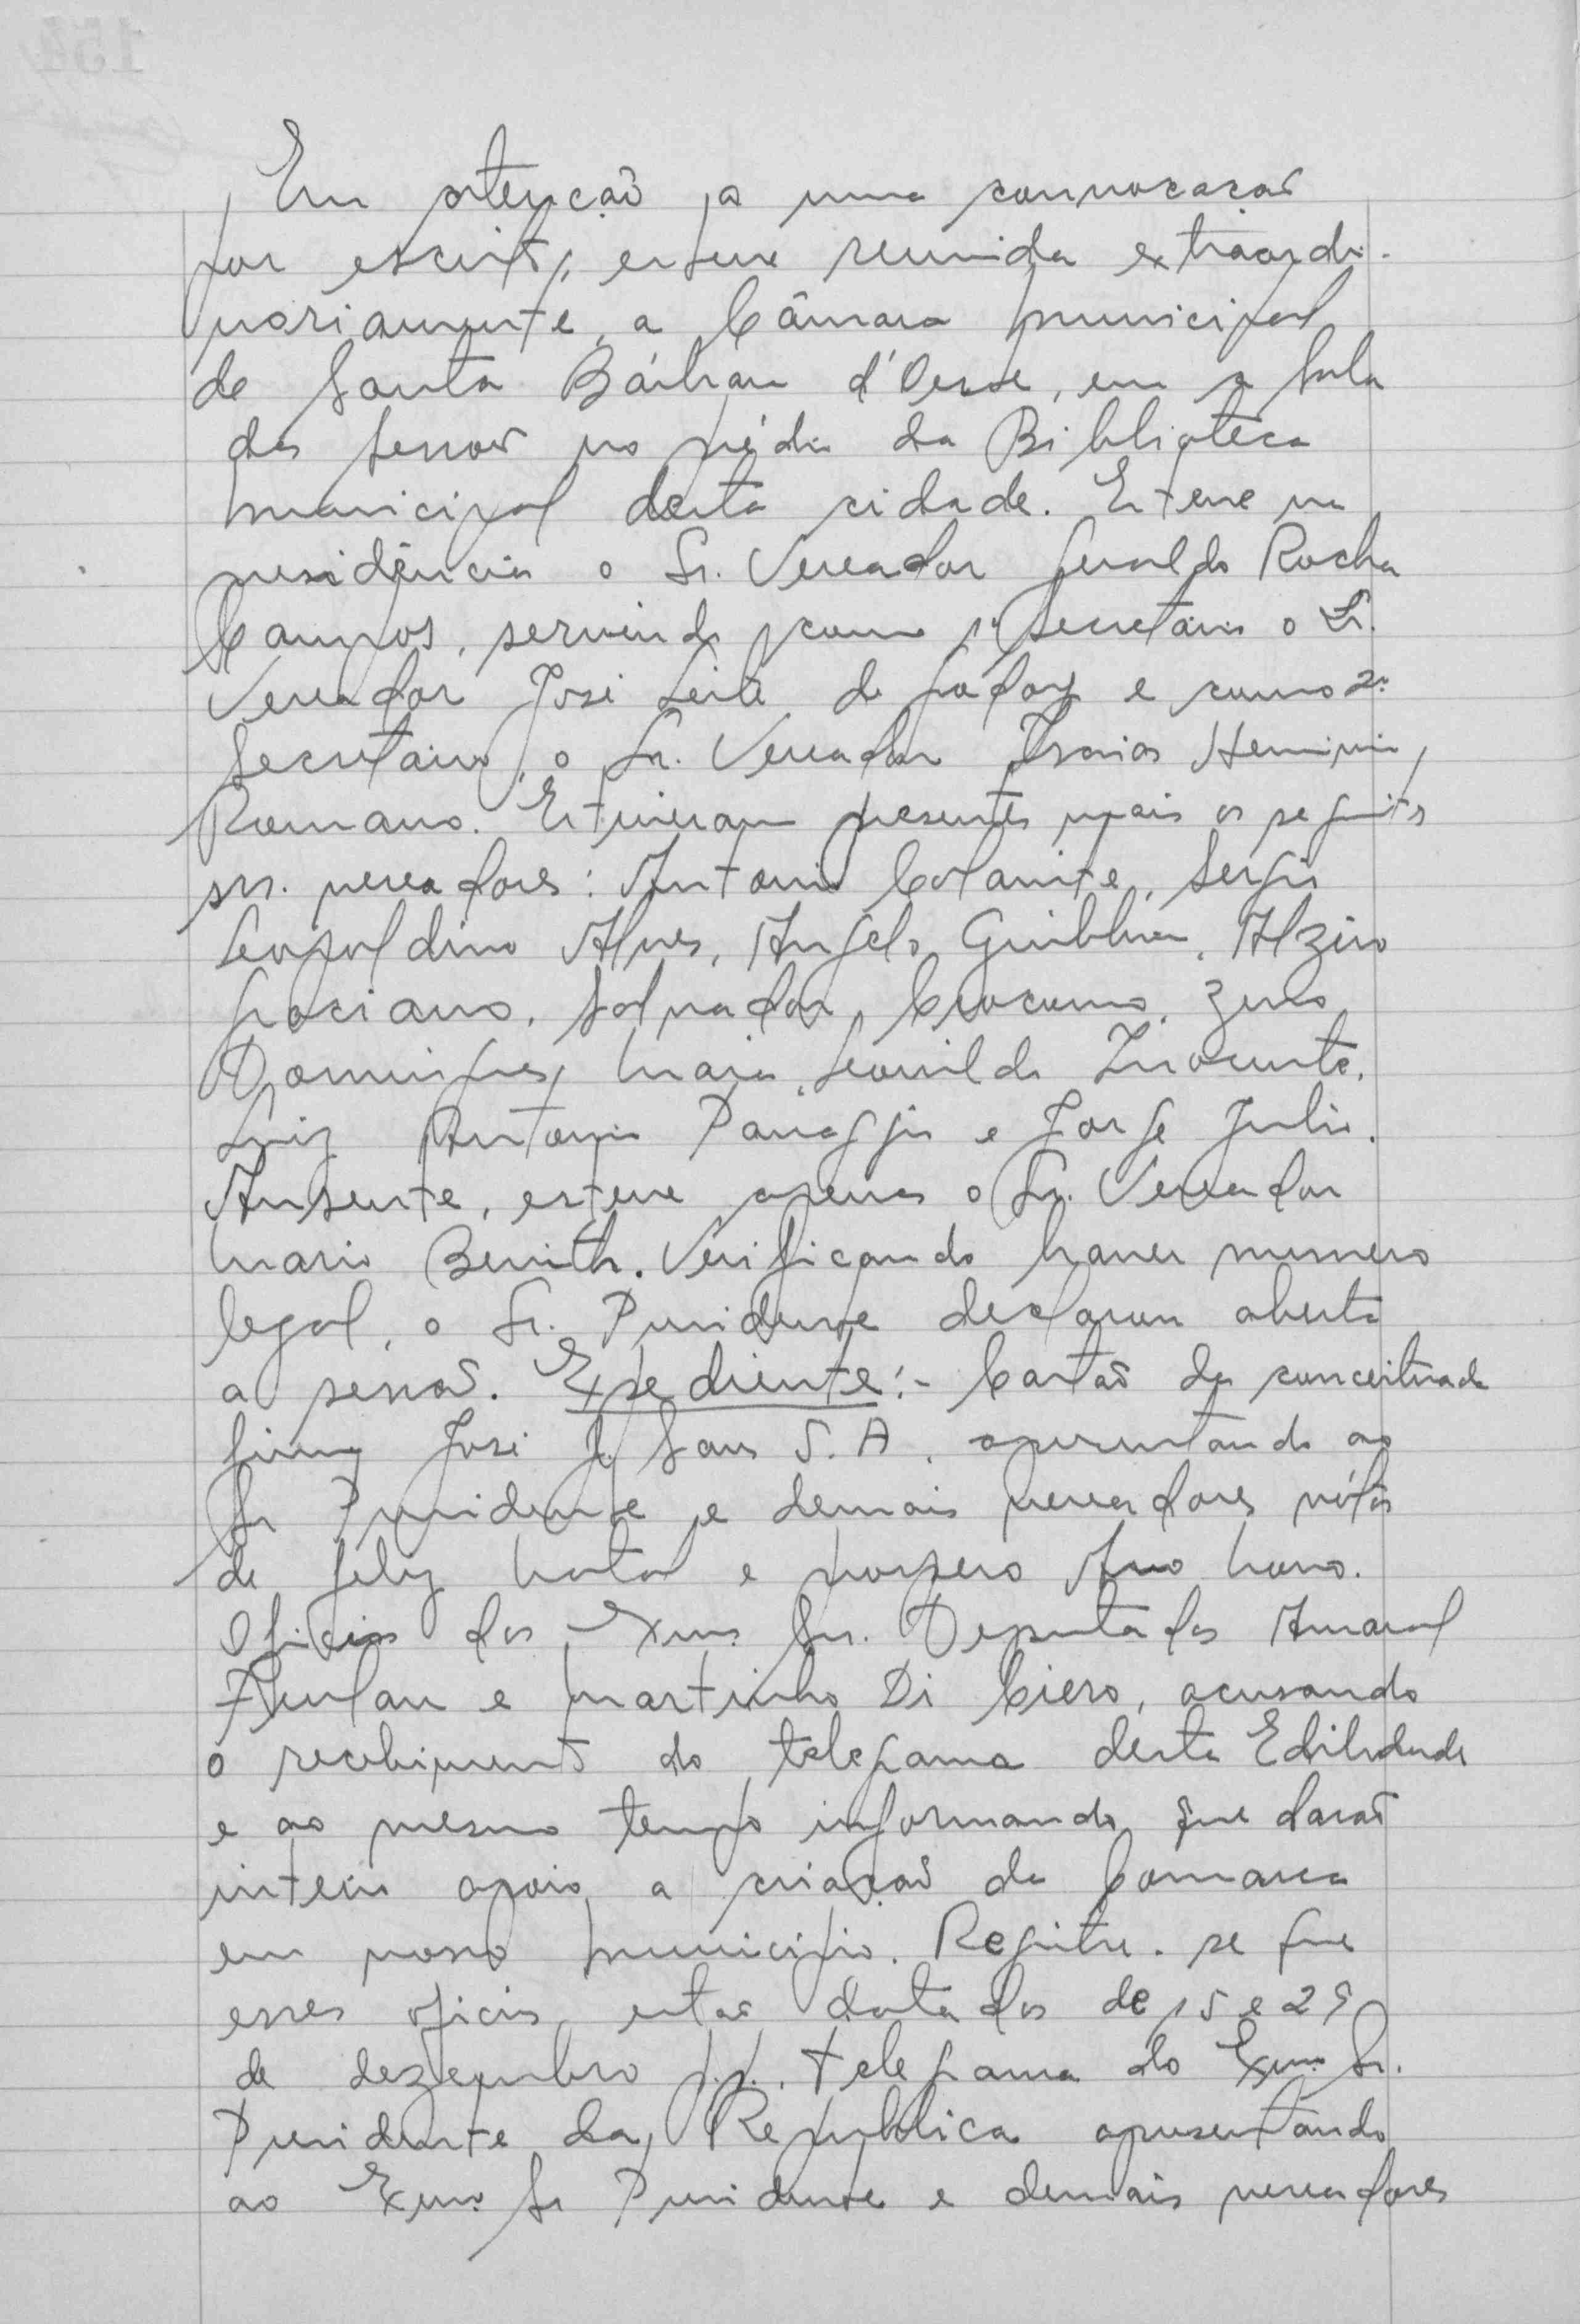 Em atenção a uma convocação
por escrito, esteve reunida extraordi-
nariamente, a Câmara Municipal
de Santa Bárbara d'Oeste, em a Sala
das Sessões no prédio da Biblioteca
Municipal desta cidade. Esteve na
presidência o Sr. Vereador Geraldo Rocha
Campos, servindo como 1º Secretário o Sr.
Vereador José Leite de Godoy e como 2º
Secretario, o Sr. Vereador Isaias Herminio
Romano. Estiveram presentes mais os seguintes
srs. vereadores: Antonio Colamite, Sergio
Leopoldino Alves, Angelo Giubbina, Alziro
Graciano, Salvador Crocomo, Zeno
Domingues Maia, Leonildo Inocente,
Luiz Antonio Panaggio e Jorge Julio.
Ausente, esteve apenas o Sr. Vereador
Mario Benith. Verificando haver numero
legal, o Sr. Presidente declarou aberta
a sessão. Expediente:- Cartão da conceituada
firma José J. Sans S.A. apresentando ao
Sr Presidente e demais vereadores vótos
de feliz Natal e prospero Ano Novo.
Oficios dos Exmos Srs. Deputados Amaral
Furlan e Martinho Di Ciero, acusando
o recebimento do telegrama desta Edilidade
e ao mesmo tempo informando que darão
inteiro apoio a criação da Comarca
em nosso Municipio. Registre-se que
esses oficios estão datados de 15 e 29
de dezembro p.p.. telegrama do Exmo Sr.
Presidente da Republica apresentando
ao Exmo Sr Presidente e demais vereadores